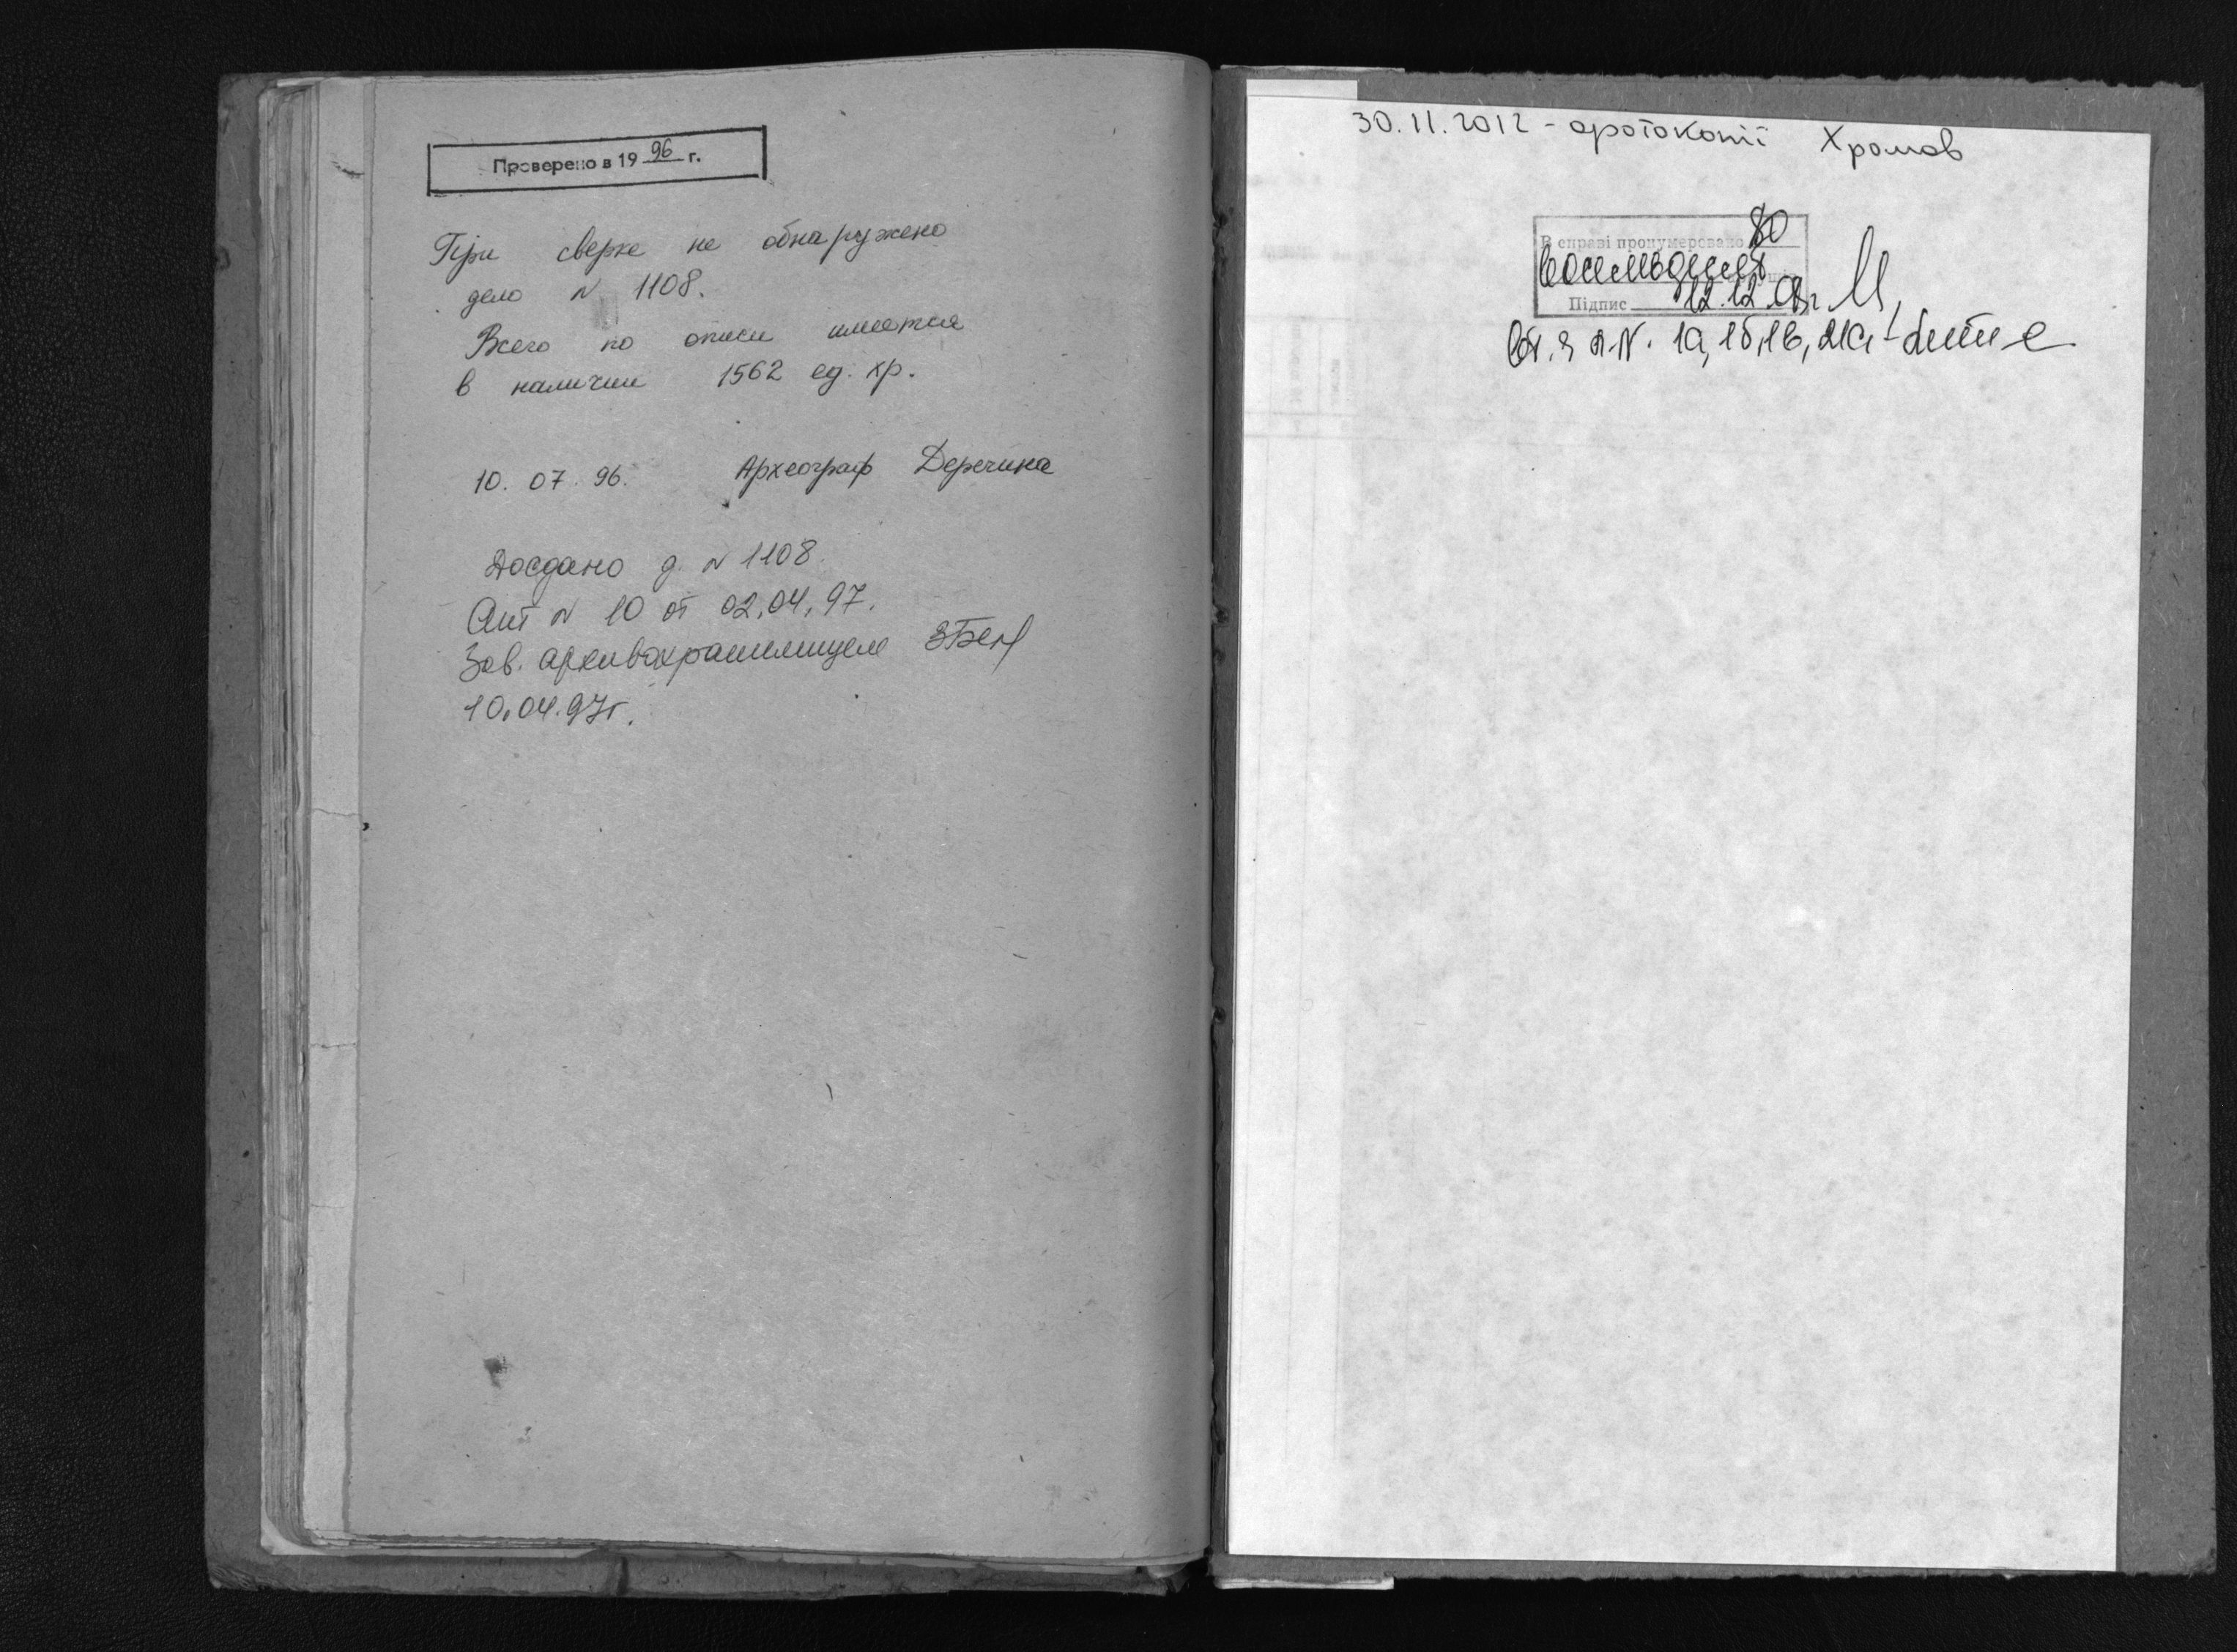 Проверено в 1996 г.
При сверке не обнаружено
дело N 1108.
Всего по описи имеется
в наличии 1562 ед. хр.
10. 07. 96. Археограф Деречина
Досдано д. N 1108.
Акт N 10 от 02.04.97.
Зав. архивохранилищем
10.04.97г.
30.11.2012 - фотокопії Хромов
В справі пронумеровано 80
восемьдесят
Підпис 12.12.
1а, 1б, 1в, 21а,